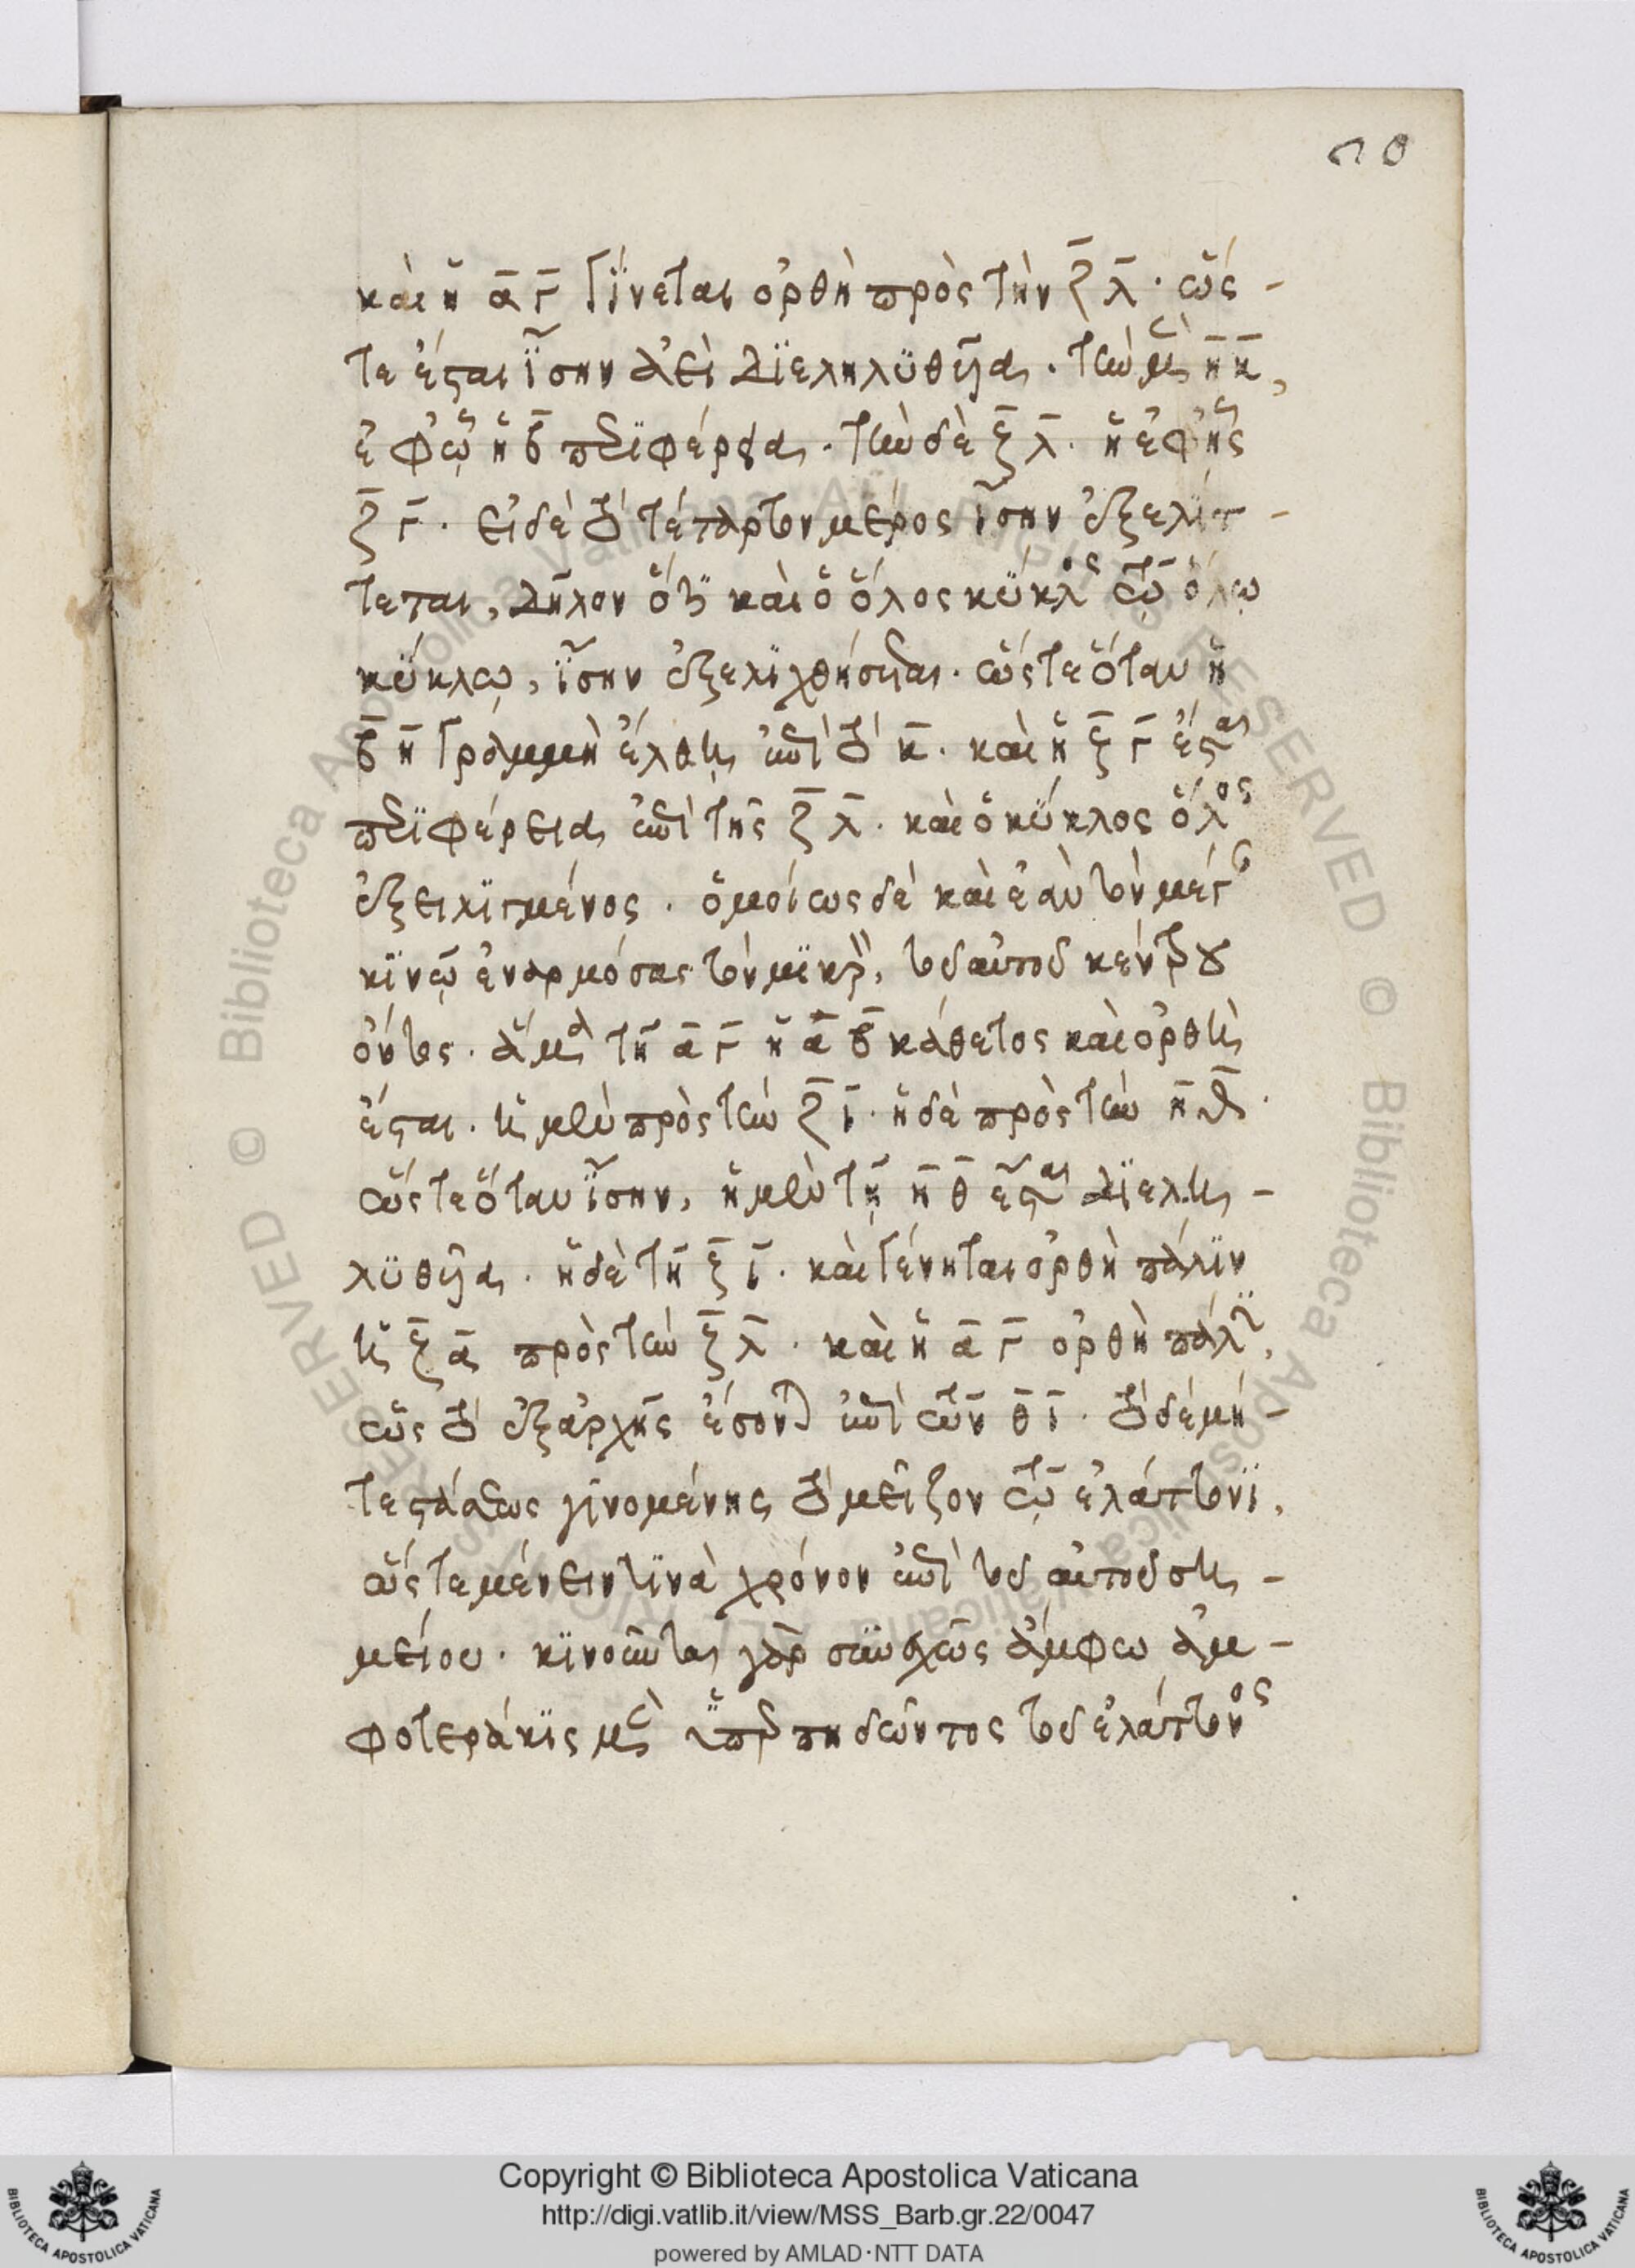 οθ
καὶ ἡ α γ γίνεται ὀρθὴ πρὸς τὴν ζ λ. ὥς-
τε ἔσται ἴσην ἀεὶ διεληλυθυῖα. τὴν μὲν η κ,
ἐφ' ᾧ ἡ β περιφέρεια. τὴν δὲ ζ λ. ἡ ἐφ' ἧς
ζ γ. εἰ δὲ τὸ τέταρτον μέρος ἴσην ἐξελίτ-
τεται, δῆλον ὅτι καὶ ὁ ὅλος κύκλος τῷ ὅλῳ
κύκλῳ, ἴσην ἐξελιχθήσεται. ὥςτε ὅταν ἡ
β η γραμμὴ ἔλθη ἐπὶ τὸ κ. καὶ ἡ ζ γ ἔσται
περιφέρεια ἐπὶ τῆς ζ λ. καὶ ὁ κύκλος ὅλος
ἐξειλιγμένος. ὁμοίως δὲ καὶ ἐὰν τὸν μέγαν
κινῶ ἐναρμόσας τὸν μικρὸν, τοῦ αὐτοῦ κέντρου
ὄντος. ἅμα τῆ α γ ἡ α β κάθετος καὶ ὀρθὴ
ἔσται. ἡ μὲν πρὸς τὴν ζ ι. ἡ δὲ πρὸς τὴν η θ.
ὥςτε ὅταν ἴσην, ἡ μὲν τῇ η θ ἔσται διελη-
λυθυῖα. ἡ δὲ τῆ ζ ι. καὶ γένηται ὀρθὴ πάλιν
ἡ ζ α πρὸς τὴν ζ λ. καὶ ἡ α γ ὀρθὴ πάλιν,
ὡς τὸ ἐξαρχῆς ἔσονται ἐπὶ τῶν θ ι. τὸ δὲ μή-
τε στάσεως γινομένης τὸ μεῖζον τῷ ἐλάττονι,
ὥςτε μένειν τινὰ χρόνον ἐπὶ τοῦ αὐτοῦ ση-
μείου. κινοῦνται γὰρ συνεχῶς ἄμφω ἀμ-
φοτεράκις μὴ ὑπερπηδῶντος τοῦ ἐλάττονος
Copyright © Biblioteca Apostolica Vaticana
http://digi.vatlib.it/view/MSS_Barb.gr.22/0047
powered by AMLAD·NTT DATA